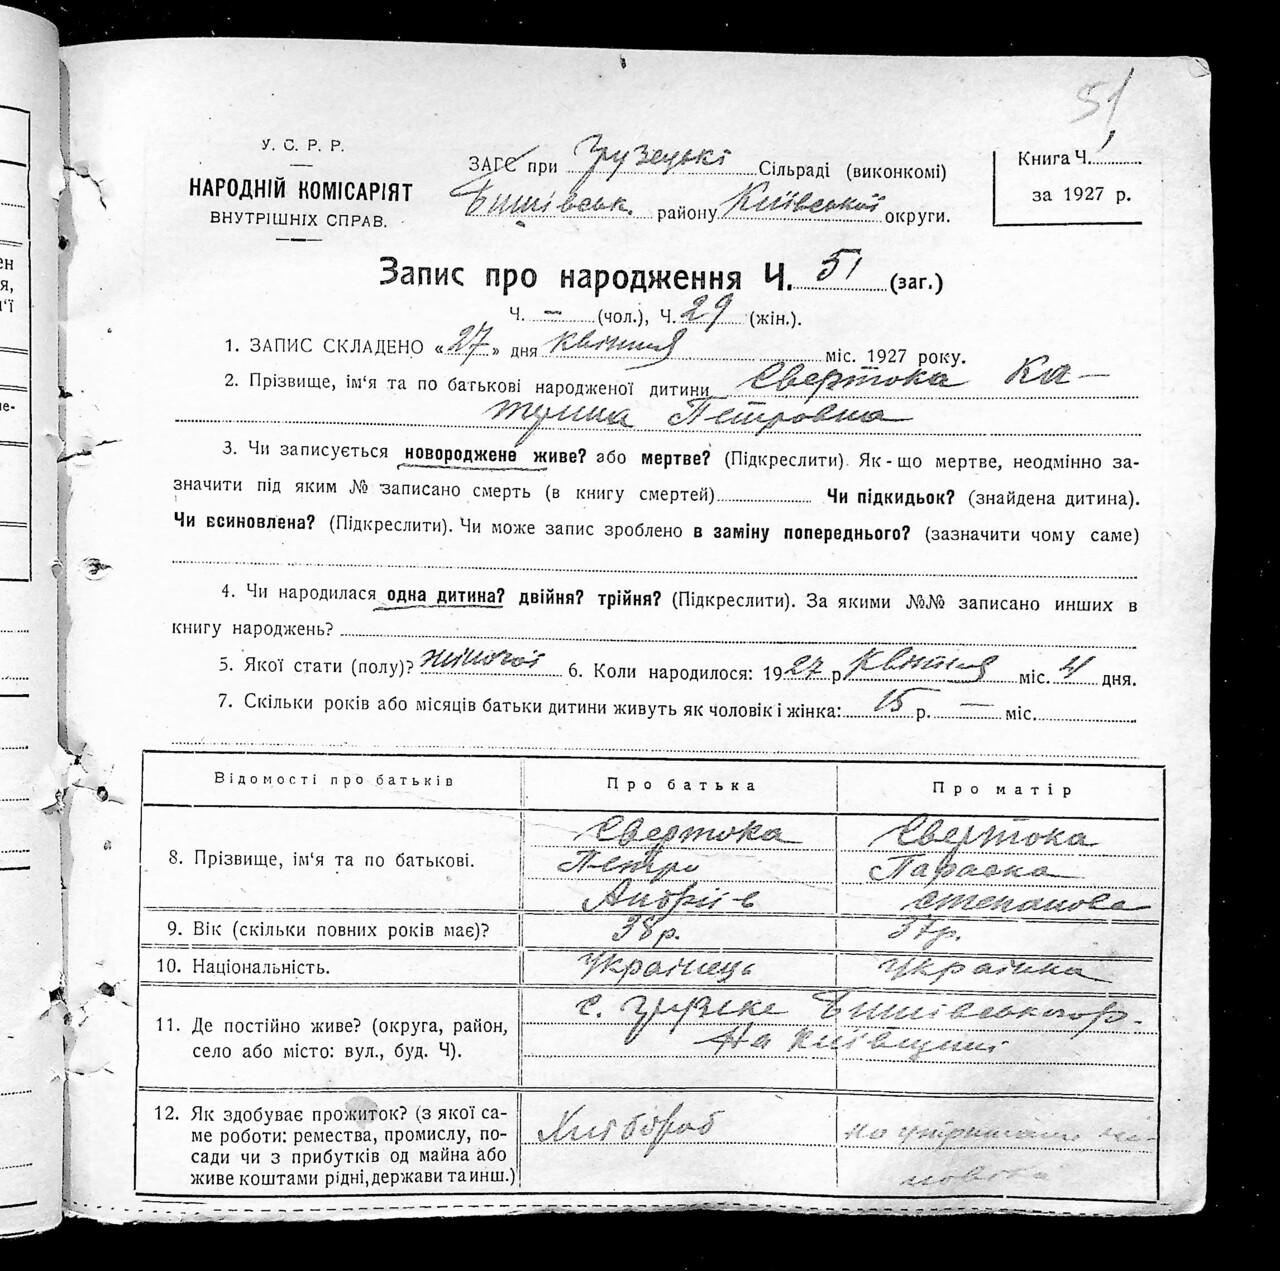 51
У. С. Р. Р.
НАРОДНІЙ КОМІСАРІЯТ
ВНУТРІШНІХ СПРАВ.
ЗАГС при Грузецькі Сільраді (виконкомі)
Бишівськ. району Київської округи.
Книга Ч. 1
за 1927 р.
Запис про народження Ч. 51 (заг.)
Ч. — (чол.), Ч. 29 (жін.).
1. ЗАПИС СКЛАДЕНО «27» дня квітня міс. 1927 року.
2. Прізвище, ім'я та по батькові народженої дитини Свертока Ка-
терина Петровна
3. Чи записується новороджене живе? або мертве? (Підкреслити). Як-що мертве, неодмінно за-
значити під яким № записано смерть (в книгу смертей) Чи підкидьок? (знайдена дитина).
Чи всиновлена? (Підкреслити). Чи може запис зроблено в заміну попереднього? (зазначити чому саме)
4. Чи народилася одна дитина? двійня? трійня? (Підкреслити). За якими №№ записано инших в
книгу народжень?
5. Якої стати (полу)? жіночої 6. Коли народилося: 1927 р. квітня міс. 4 дня.
7. Скільки років або місяців батьки дитини живуть як чоловік і жінка: 15 р. — міс.
Відомості про батьків Про батька Про матір
8. Прізвище, ім'я та по батькові.
Свертока Свертока
Петро Параска
Андріїв Степанова
9. Вік (скільки повних років має)? 38 р. 37 р.
10. Національність. Українець Українка
11. Де постійно живе? (округа, район,
село або місто: вул., буд. Ч).
с. Грузке Бишівського р.
на Київщині
12. Як здобуває прожиток? (з якої са-
ме роботи: ремества, промислу, по-
сади чи з прибутків од майна або
живе коштами рідні, держави та инш.)
Хлібороб на утриманні